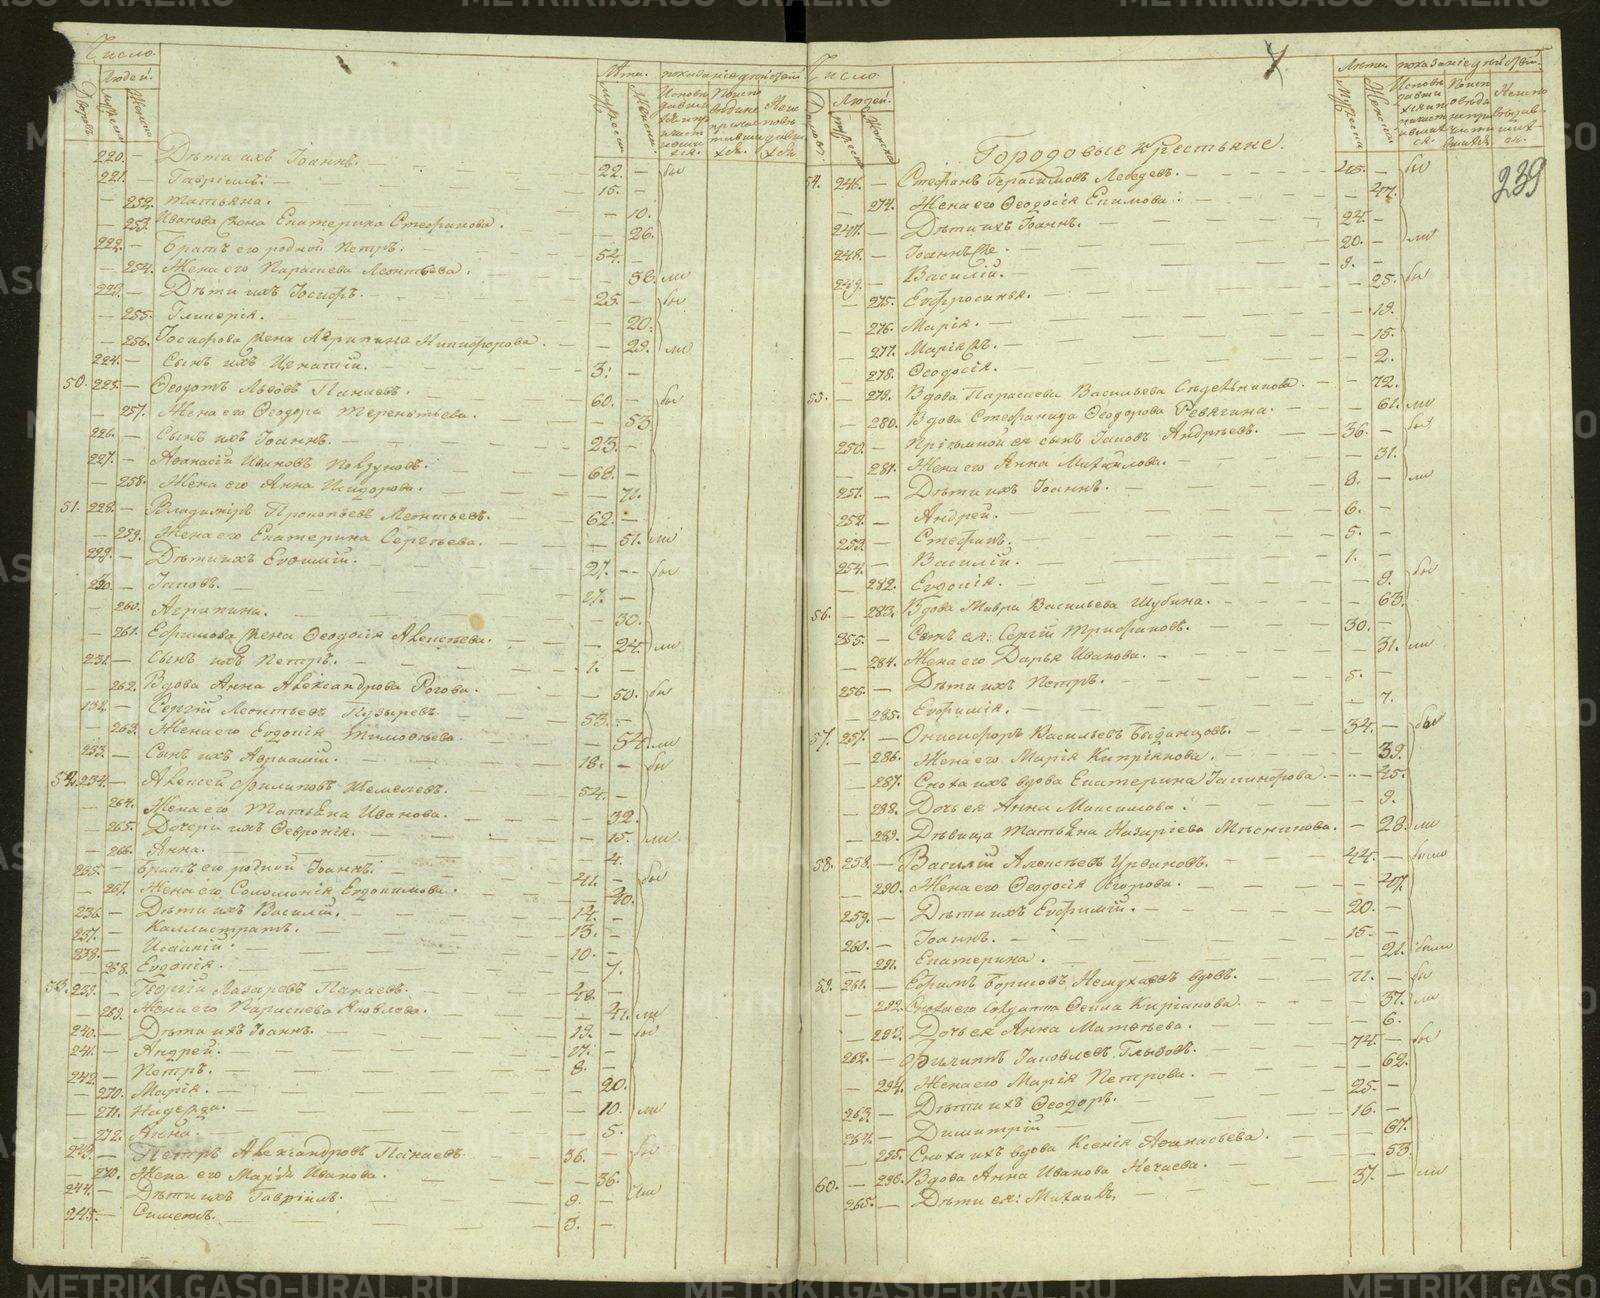 Число
Людей.
Дворовъ
мужеска
Женска
Лѣты.
показаніе дѣйствій
220. — Дѣти ихъ Іоаннъ. — 22. — бы
221. — Гавріилъ. — 15. —
— 252. Татьяна. — 10.
— 253. Иванова жена Екатерина Стефанова. — 26.
222. — Братъ его родной Петръ. — 54. —
— 254. Жена его Параскева Леонтьева. — 38. ли
223. — Дѣти ихъ Іосифъ. — 25. — бы
— 255. Гликерія. — 20.
— 256. Іосифова жена Агрипина Никифорова. — 29. ли
224. — Сынъ ихъ Игнатій. — 3. —
50. 225. — Ѳеодотъ Львовъ Панаевъ. — 60. — бы
— 257. Жена его Ѳеодора Терентьева. — 53.
226. — Сынъ ихъ Іоаннъ. — 23. —
227. — Аѳанасій Ивановъ — 68. —
— 258. Жена его Анна Исидорова. — 71.
51. 228. — Владимиръ Прокопьевъ Леонтьевъ. — 62. —
— 259. Жена его Екатерина Сергѣева. — 51. ли
229. — Дѣти ихъ Евѳимій. — 27. — бы
230. — Іаковъ. — 17. —
— 260. Агрипина. — 30.
— 261. Ефимова жена Ѳеодосія Алексѣева. — 24. ли
231. — Сынъ ихъ Петръ. — 1. —
— 262. Вдова Анна Александрова Рогова. — 50. бы
132. — Сергій Леонтьевъ Пузыревъ. — 53. —
— 263. Жена его Евдокія Тимоѳеева. — 54. ли
233. — Сынъ ихъ — 18. — бы
52. 234. — Алексей Филиповъ Шемелевъ. — 54. —
— 264. Жена его Татьяна Иванова. — 32.
— 265. Дочери ихъ Ѳевронія. — 15. ли
— 266. Анна. — 4.
235. — Братъ его родной Іоаннъ. — 41. — бы
— 267. Жена его Соломонія Евдокимова. — 40.
236. — Дѣти ихъ Василій. — 14. —
237. — Каллистратъ. — 13. —
238. — Исакій. — 10. —
— 268. Евдокія. — 7.
53. 239. — Георгій Лазаревъ Панаевъ. — 48. —
— 269. Жена его Параскева Яковлева. — 41. ли
240. — Дѣти ихъ Іоаннъ. — 19. — бы
241. — Андрей. — 17. —
242. — Петръ. — 8. —
— 270. Марія. — 20.
— 271. Надежда. — 10. ли
— 272. Анна. — 5.
243. — Петръ Александровъ Панаевъ. — 36. — бы
— 270. Жена его Марія Иванова. — 36.
244. — Дѣти ихъ Гавріилъ. — 9. — ли
245. — Симеонъ. — 3. —
Число
Людей.
мужеск
Женска
Лѣты
показаніе дѣйствій
Мужеска
Женска
239
Городовые Крестьяне.
54. 246. — Стефанъ Герасимовъ Лебедевъ. — 45. — бы
— 274. Жена его Ѳеодосія Екимова. — 47.
247. — Дѣти ихъ Іоаннъ. — 24. —
248. — Іоаннъ же. — 20. — ли
249. — Василій. — 9. —
— 275. Евфросинья. — 25. бы
— 276. Марія. — 19.
— 277. Марія же. — 15.
— 278. Ѳеодосія. — 2.
55. — 279. Вдова Параскева Васильева Сѣдельникова. — 72.
— 280. Вдова Стефанида Ѳеодорова Ревягина. — 61. ли
250. — Пріемной ея сынъ Іаковъ Андрѣевъ. — 36. — бы
— 281. Жена его Анна Михайлова. — 31.
251. — Дѣти ихъ Іоаннъ. — 8. — ли
252. — Андрей. — 6. —
253. — Стефанъ. — 5. —
254. — Василій. — 1. —
— 282. Евдокія. — 9. бы
56. — 283. Вдова Мавра Васильева Шубина. — 63.
255. — Сынъ ея: Сергій Трифановъ. — 30. —
— 284. Жена его Дарья Иванова. — 31. ли
256. — Дѣти ихъ Петръ. — 5. —
— 285. Евфимія. — 7.
57. 257. — Онисифоръ Васильевъ — 34. — бы
— 286. Жена его Марія Кипріянова. — 39.
— 287. Сноха ихъ вдова Екатерина — 45.
— 288. Дочь ея Анна Максимова. — 9.
— 289. Дѣвица Татьяна Назаріева Мѣсникова. — 28. ли
58. 258. — Василій Алексѣевъ Урвановъ. — 44. — были
— 290. Жена его Ѳеодосія Егорова. — 47.
259. — Дѣти ихъ Евфимій. — 20. —
260. — Іоаннъ. — 15. —
— 291. Екатерина. — 21. были
59. 261. — Ефимъ Борисовъ вдовъ. — 71. — бы
— 292. Сноха его солдатка Ѳекла Киріанова. — 37. ли
— 293. Дочь ея Анна Матѳѣева. — 6.
262. — Филиппъ Іаковлевъ Глызовъ. — 74. — бы
— 294. Жена его Марія Петрова. — 62.
263. — Дѣти ихъ Ѳеодоръ. — 25. —
264. — Димитрій — 16. —
— 295. Сноха ихъ вдова Ксенія Аѳанасьева. — 67.
60. — 296. Вдова Анна Иванова Нечаева. — 53.
265. — Дѣти ея: Михаилъ, — 37. — ли
METRIKI.GASO-URAL.RU